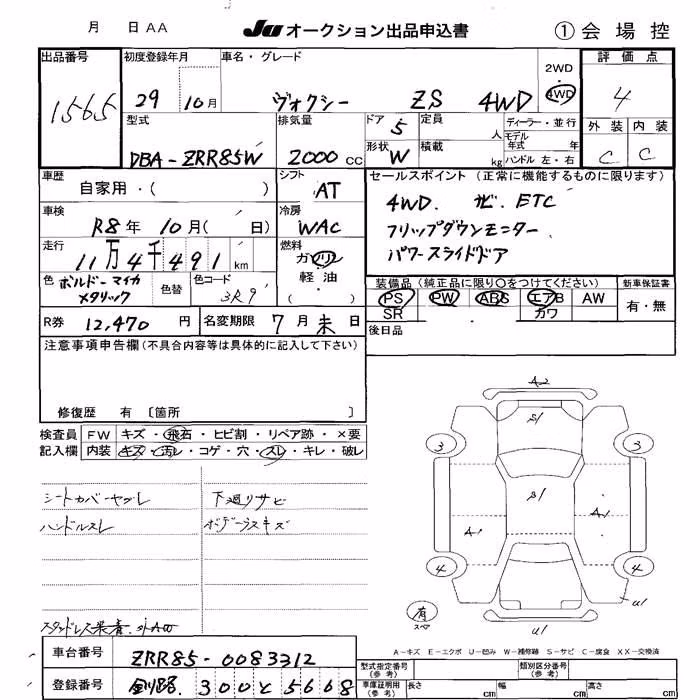 月 日 AA Ju オークション出品申込書 ① 会場控
出品番号 初度登録年月 車名・グレード 2WD ・ 4WD 評価点
1565 29 10月 ヴォクシー ZS 4WD 4
型式 排気量 ドア 5 定員 人 ディーラー・並行 外装 内装
DBA-ZRR85W 2000 cc 形状 W 積載 kg モデル年式 年式 ハンドル 左・右 C C
車歴 自家用・( ) シフト AT セールスポイント (正常に機能するものに限ります)
車検 R8年 10月( 日) 冷房 WAC 4WD. ナビ. ETC
走行 11万4千491 km 燃料 ガソリン 軽油 ( ) フリップダウンモニター
パワースライドドア
色 ボルドーマイカメタリック 色替 色コード 3R9 装備品 (純正品に限り○をつけてください) 新車保証書
PS PW ABS エアB AW 有・無
SR カワ
R券 12,470 円 名変期限 7月末日 後日品
注意事項申告欄(不具合内容等は具体的に記入して下さい)
修復歴 有 〔箇所 〕
検査員 FW キズ・飛石・ヒビ割・リペア跡・×要
記入欄 内装 キズ・汚レ・コゲ・穴・スレ・キレ・破レ
シートカバーヤブレ 下廻りサビ
ハンドルスレ ボデーラスキズ
スタッドレス装着. 外AW
A2
S/
3 3
S/
A1 A1
4 4
U1
有 スペア U1
A-キズ E-エクボ U-凹み W-補修跡 S-サビ C-腐食 XX-交換済
車台番号 ZRR85-0083312 型式指定番号(参考) 類別区分番号(参考)
登録番号 釧路 300 と 5668 車庫証明用(参考) 長さ cm 幅 cm 高さ cm